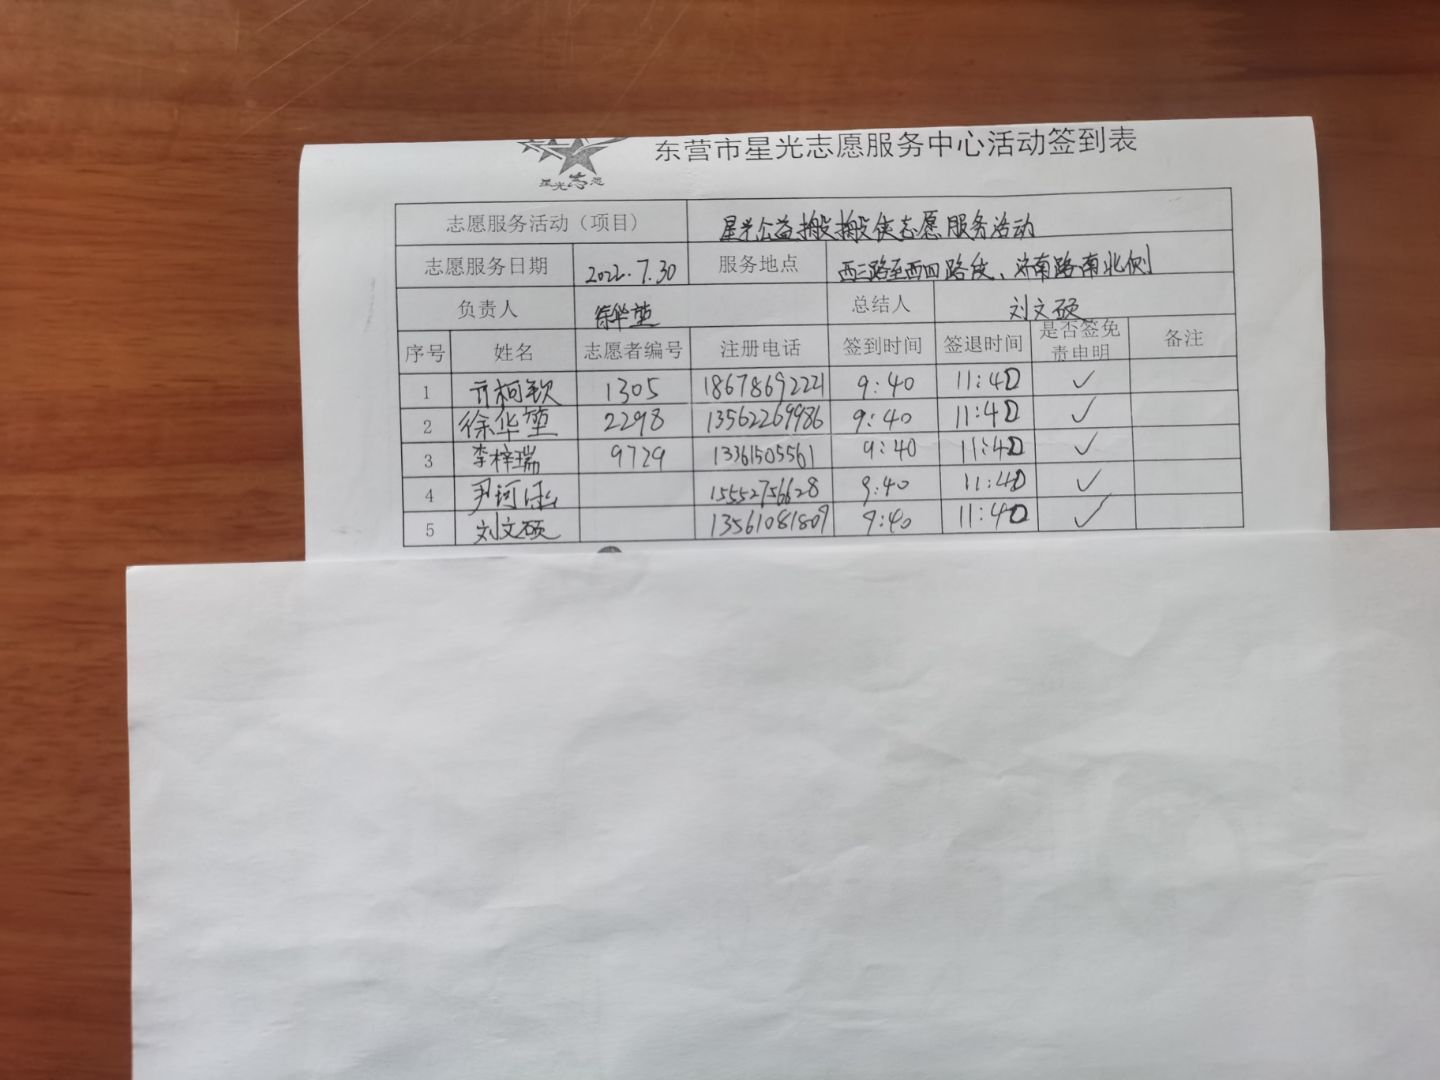 东营市星光志愿服务中心活动签到表
星光志愿
志愿服务活动（项目） 星光公益搬搬侠志愿服务活动
志愿服务日期 2022.7.30 服务地点 西三路至西四路段、济南路南北侧
负责人 徐华堃 总结人 刘文硕
序号 姓名 志愿者编号 注册电话 签到时间 签退时间 是否签免责申明 备注
1 亓柯钦 1305 18678692221 9:40 11:40 ✓
2 徐华堃 2298 13562269986 9:40 11:40 ✓
3 李梓瑞 9729 13361505561 9:40 11:40 ✓
4 尹珂 15552756628 9:40 11:40 ✓
5 刘文硕 13561081807 9:40 11:40 ✓